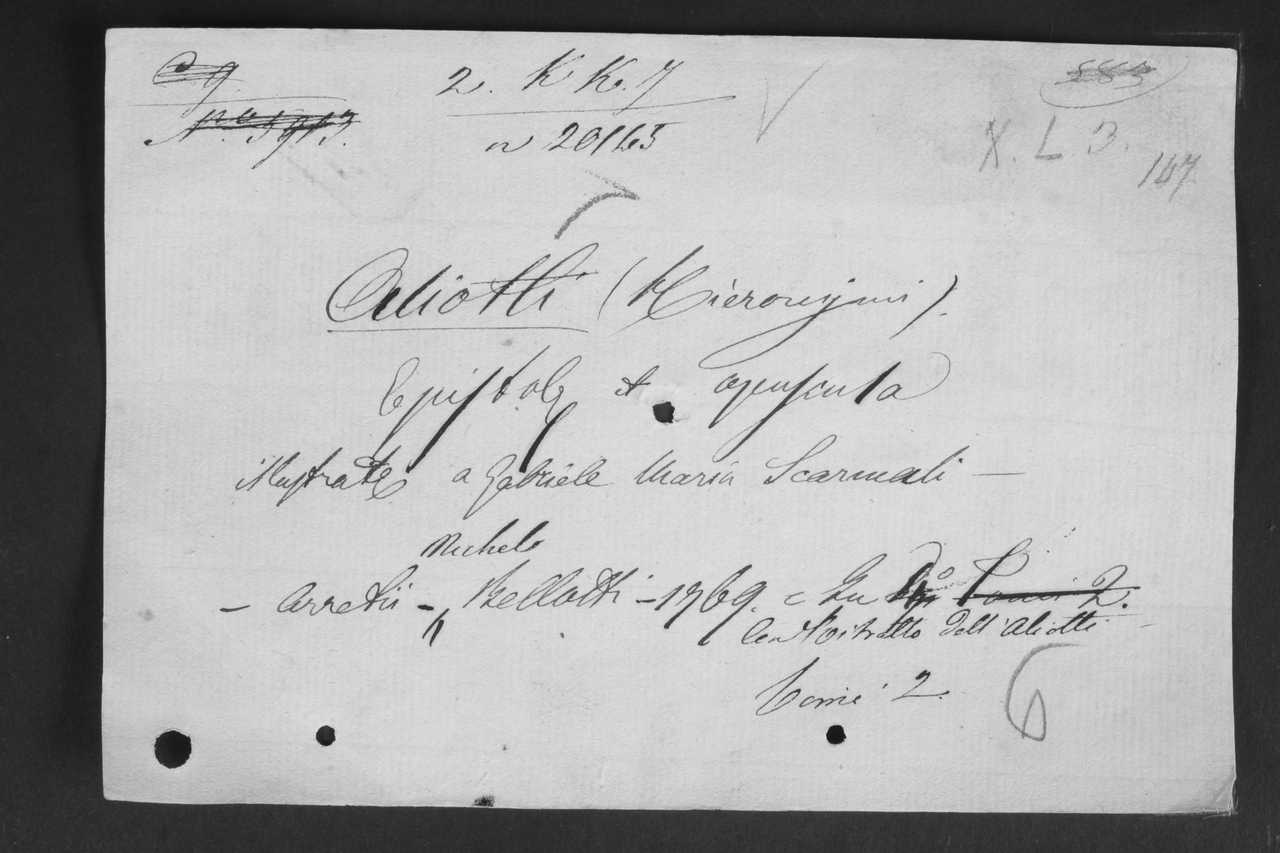 2. K K. 7
X. L 3.
n 20163
147
Aliotti (Hieronymi).
Epistolę et opuscula
illustratę a Gabriele Maria Scarmali —
Michele
— Arretii — Bellotti — 1769. = In 4º Tomi 2.
Con Ritratto dell'Aliotti —
Tomi 2.
6